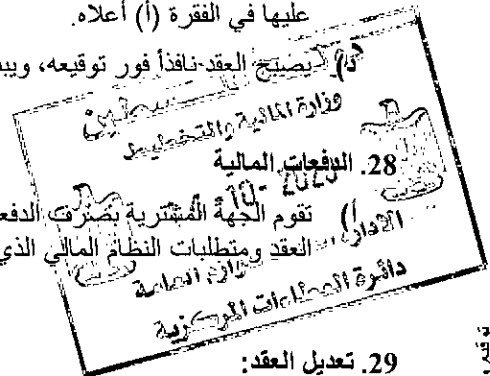 عليها في الفقرة (أ) أعلاه.
د) يصبح العقد نافذاً فور توقيعه، ويبد
فلسطين
وزارة المالية والتخطيط
28. الدفعات المالية
أ) تقوم الجهة المشترية بصرف الدفع
العقد ومتطلبات النظام المالي الذي
الادارة العامة
دائرة العطاءات المركزية
29. تعديل العقد: